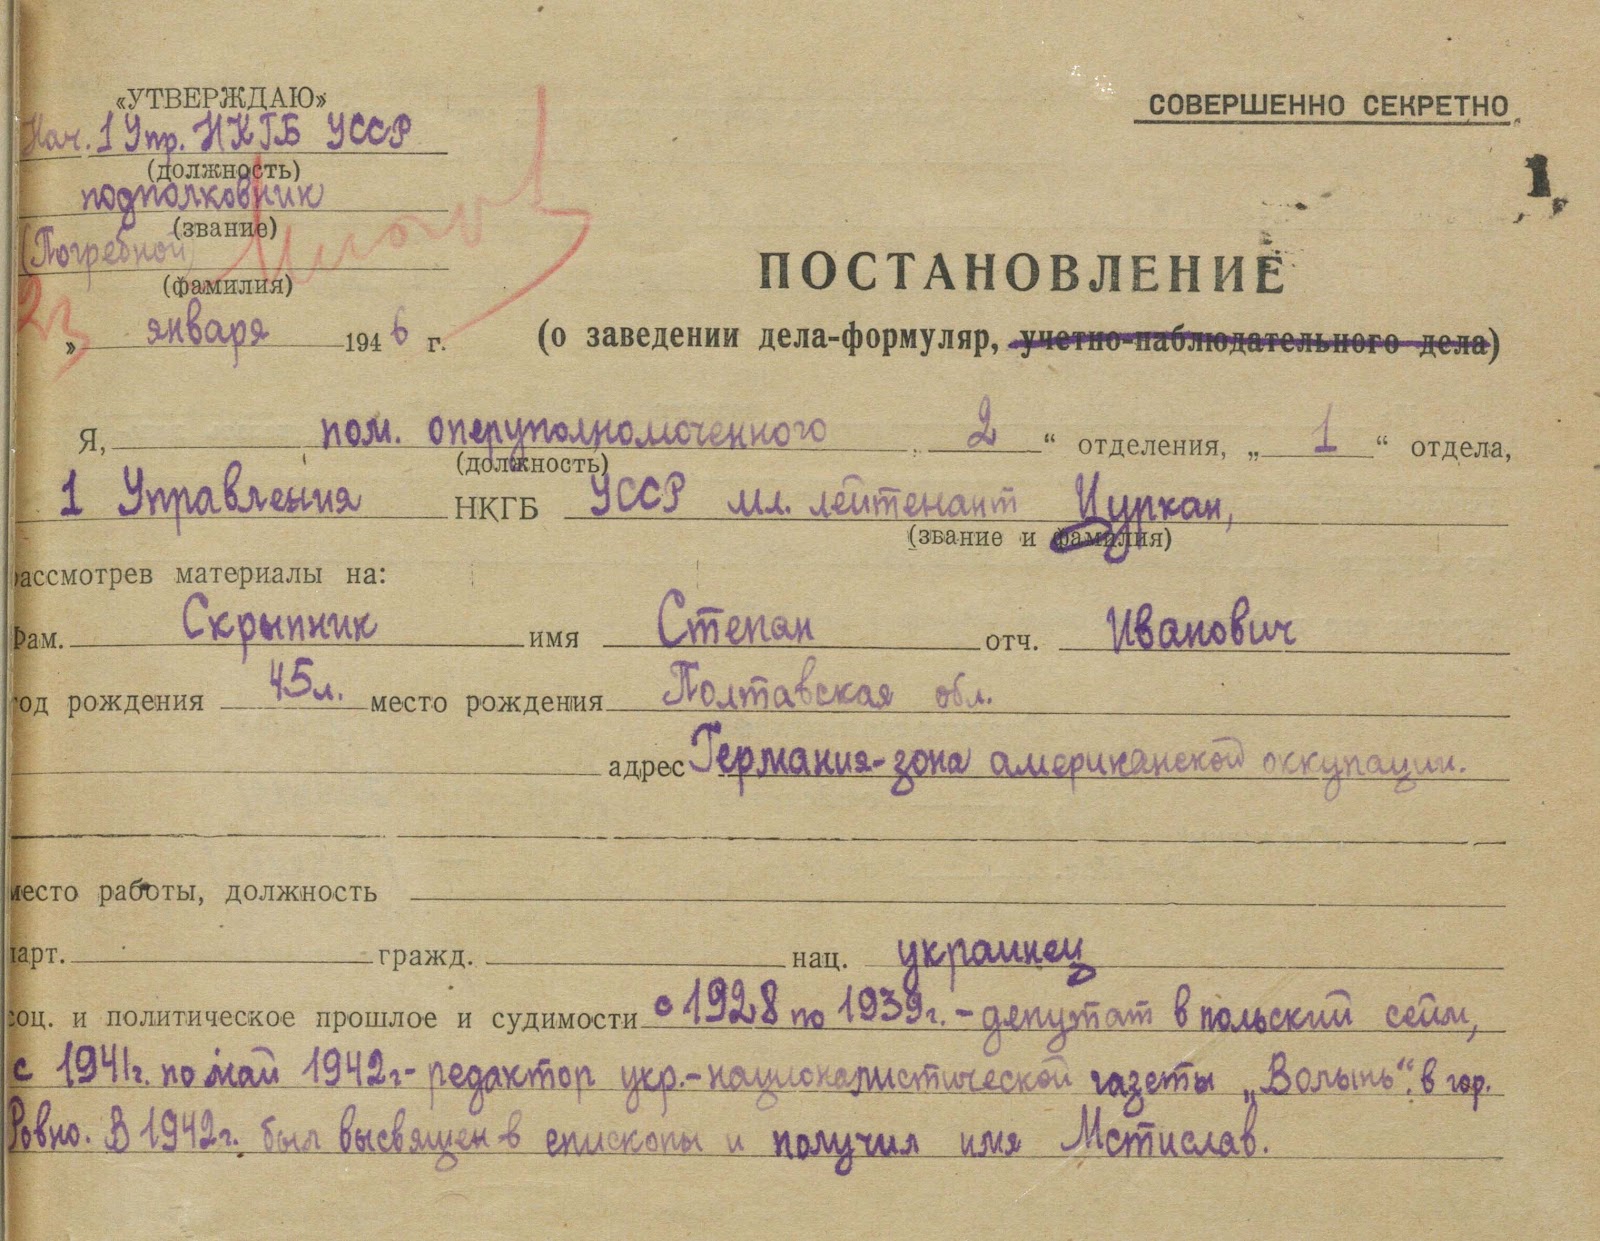 «УТВЕРЖДАЮ»
СОВЕРШЕННО СЕКРЕТНО
Нач. 1 Упр. НКГБ УССР
(должность)
1
подполковник
(звание)
(Погребной)
(фамилия)
23 » января 1946 г.
ПОСТАНОВЛЕНИЕ
(о заведении дела-формуляр, учетно-наблюдательного дела)
Я, пом. оперуполномоченного 2 “ отделения, „ 1 “ отдела,
(должность)
1 Управления НКГБ УССР мл. лейтенант Цуркан,
(звание и фамилия)
рассмотрев материалы на:
Фам. Скрыпник имя Степан отч. Иванович
год рождения 45 л. место рождения Полтавская обл.
адрес Германия-зона американской оккупации.
место работы, должность
парт. гражд. нац. украинец
соц. и политическое прошлое и судимости с 1928 по 1939 г. - депутат в польский сейм,
с 1941 г. по май 1942 г - редактор укр.-националистической газеты „Волынь“. в гор.
Ровно. В 1942 г. был высвящен в епископы и получил имя Мстислав.